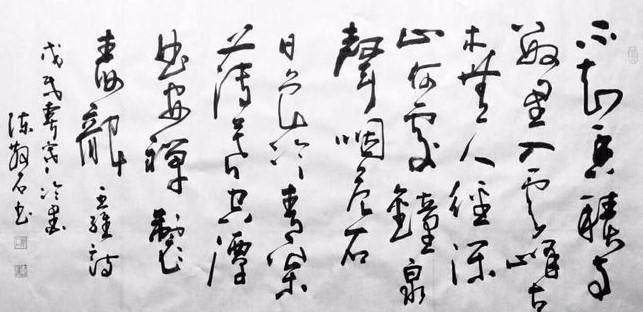 不知香積寺
數里入雲峰古
木無人徑深
山何處鐘泉
聲咽危石
日色冷青松
薄暮空潭
曲安禪製
毒龍 王維詩
戊戌
書